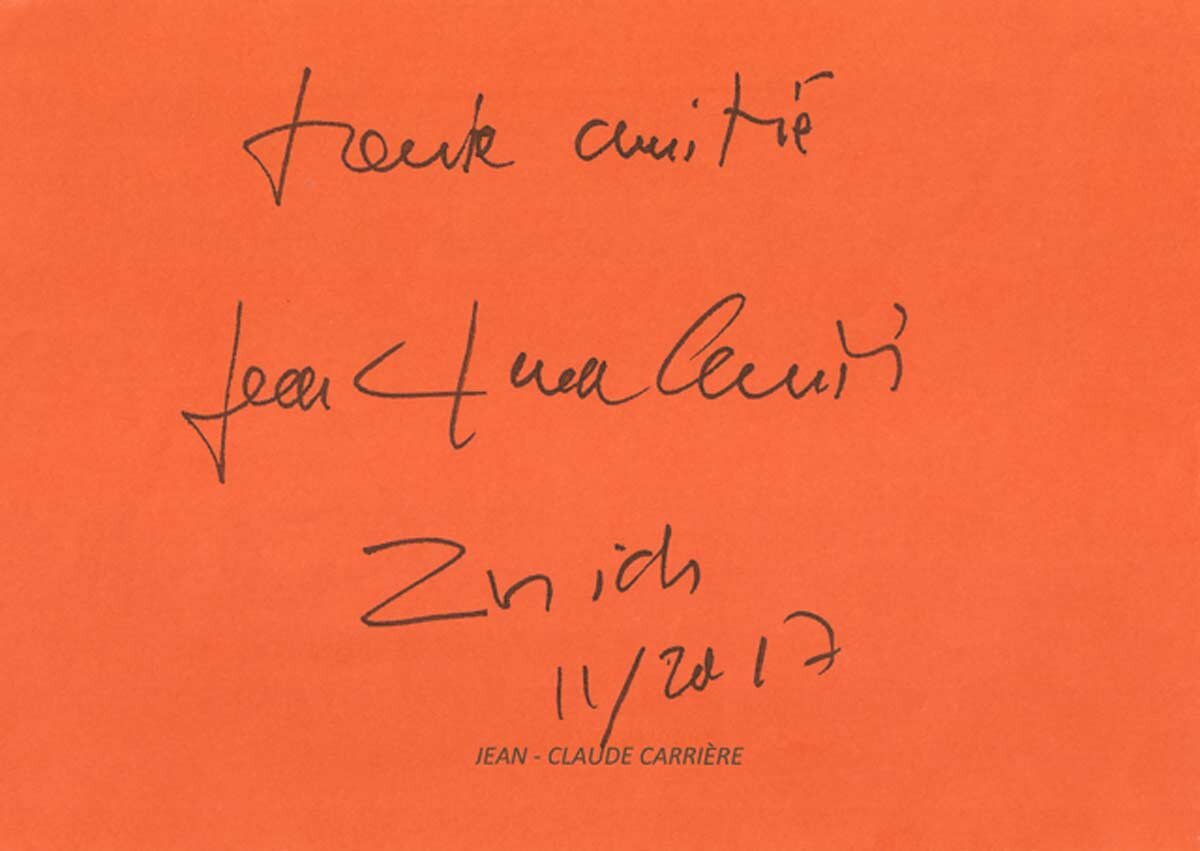 toute amitié
Jean Claude Carrière
Zurich
11/2017
JEAN - CLAUDE CARRIÈRE